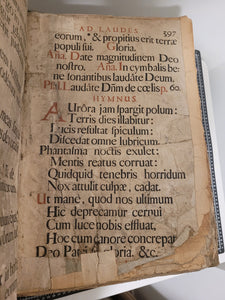 AD LAUDES. 597
eorum, * & propitius erit terræ
populi sui. Gloria.
Aña. Date magnitudinem Deo
nostro. Aña. In cymbalis be-
ne sonantibus laudáte Deum.
Psal. Laudáte Dñm de cœlis p. 60.
HYMNUS.
AUrôra jam spargit polum:
Terris dies illabitur:
Lucis resultat spiculum:
Discedat omne lubricum.
Phantasma noctis exulet:
Mentis reatus corruat:
Quidquid tenebris horridum
Nox attulit culpæ, cadat.
Ut mane, quod nos ultimum
Hic deprecamur cernui
Cum luce nobis effluat,
Hoc cum canore concrepat
Deo Patri gloria. &c.